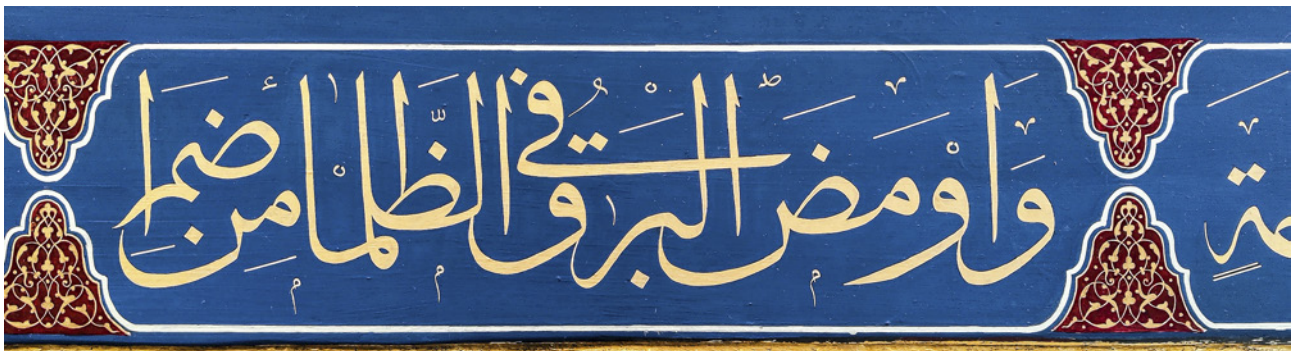 وَاَوْمَضَ الْبَرْقُ فِى الظَّلْمَاءِ مِنْ اِضَمِ